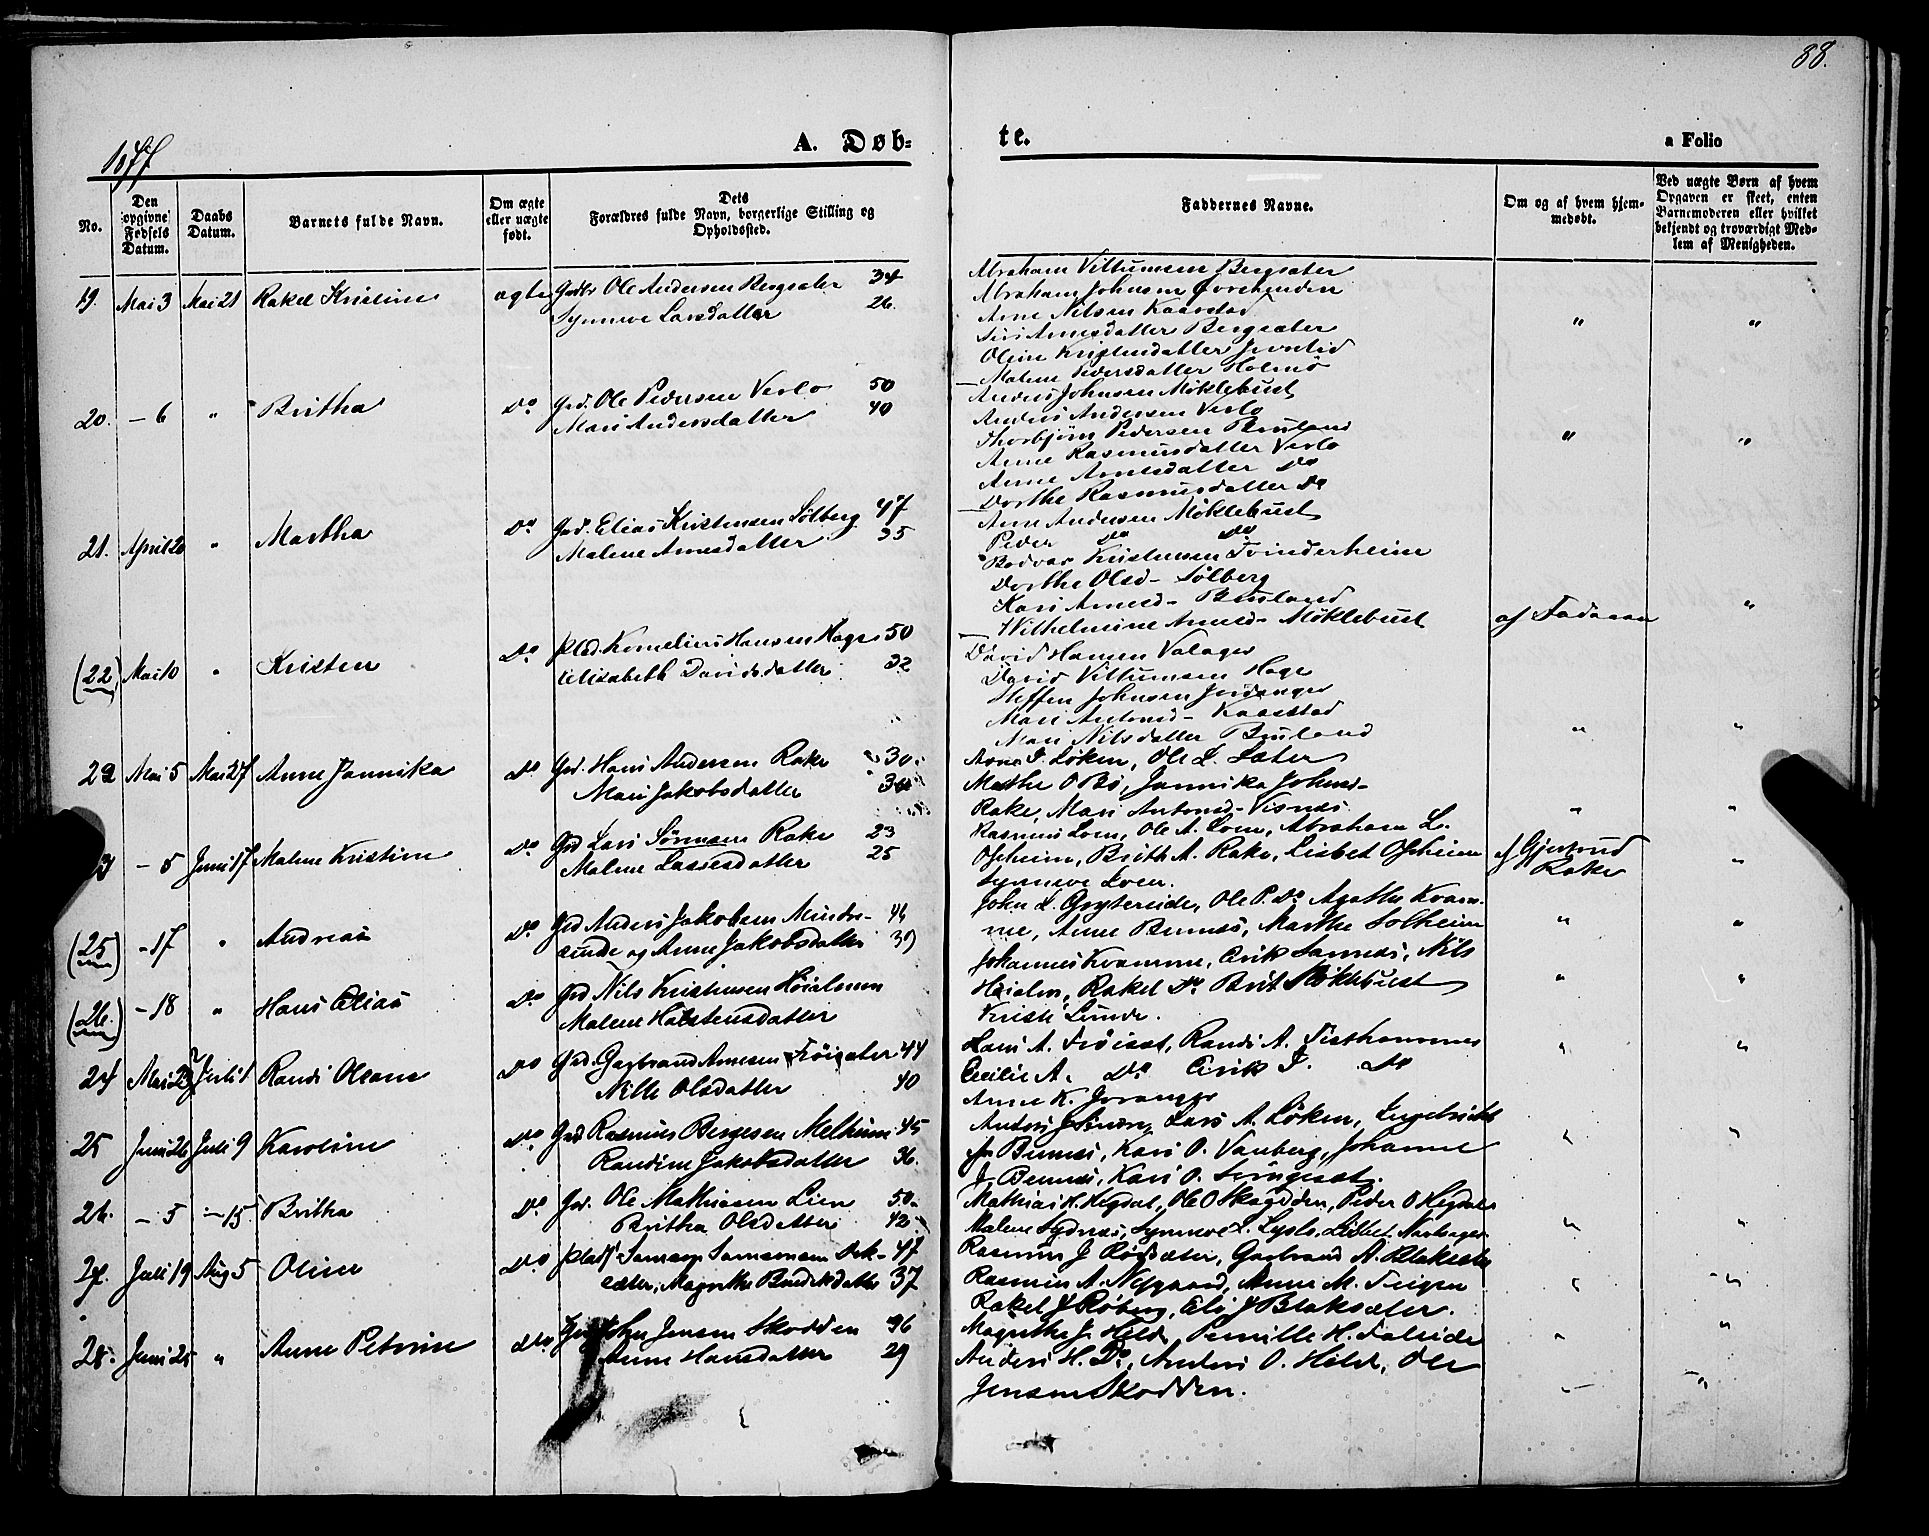 88.
1877
A. Døb-
te.
a Folio
No.
Den opgivne Fødsels Datum.
Daabs Datum.
Barnets fulde Navn.
Om ægte eller uægte født.
Dets Forældres fulde Navn, borgerlige Stilling og Opholdssted.
Faddernes Navne.
Om og af hvem hjemmedøbt.
Ved uægte Børn af hvem Opgaven er skeet, enten Barnemoderen eller hvilket bekjendt og troværdigt Medlem af Menigheden.
19. Mai 3 Mai 21 Rakel Kristine ægte Ole Andersen Bergsæter 34
Synneve Larsdatter 26.
Abraham Villumsen Bergsæter
Abraham Johnsen
Arne Nilsen Kaarstad
Siri Arnesdatter Bergsæter
Oline Kristensdatter
Malene Pedersdatter Holmø
20. - 6 " Britha Do Grd. Ole Pedersen Verlo 50
Mari Andersdatter 40
Anders Johnsen Møklebust
Anders Andersen Verlo
Thorbjørn Pedersen Bruland
Anne Rasmusdatter Verlo
Anne Arnesdatter Do
Dorthe Rasmusdatter Do
21. April 20 " Martha Do Grd. Elias Kristensen Sølberg 47
Malene Arnesdatter 35
Arne Andersen Møklebust
Peder Do Do
Bodvar Kristensen Tvinderheim
Dorthe Olsd- Sølberg
Kari Arnesd- Bruland
Wilhelmine Arnesd- Møklebust
af Faderen
(22) Mai 10 " Kristen Do Pld. Kornelius Hansen Hage 50
Elisabeth Davidsdatter 32
David Hansen Valager
David Villumsen Hage
Steffen Johnsen
Mari Antonsd- Kaarstad
Mari Nilsdatter Bruland
22 Mai 5 Mai 27 Anne Jannika Do Grd. Hans Andersen Rake 30
Mari Jakobsdatter 30
Løken, Ole L. Sæter
Marthe O Bø, Jannika Johnsd-
Rake, Mari Antonsd- Visnæs
- 5 Juni 17 Malene Kristine Do Grd Lars Sørensen Rake 23
Malene Lassesdatter 25
Rasmus Loen, Ole A. Loen, Abraham L.
Opheim, Brith A. Rake, Lisbet Opheim
Synneve Loen.
af Gjertrud
Rake
(25) - 17 " Andreas Do Grd Anders Jakobsen Mindre-
sunde og Anne Jakobsdatter 39
John L. Grytereide, Ole P. Do Agathe Kvam-
me, Anne Bennes, Marthe Solheim
(26.) - 18 " Hans Elias Do Grd Nils Kristensen Høialmen
Malene Halstensdatter
Johannes Kvamme, Erik Sannes, Nils
Høialm, Rakel Do Brit Møklebust
Kirsti Sunde.
24 Mai 23 Juli 1 Randi Oleane Do Grd. Garbrand Arnesen Frøisæter 44
Nille Olsdatter 40
Hans A. Frøiset, Randi A. Tisthammer
Cecilie A. Do Erik J. Do
Anne K.
25 Juni 26 Juli 9 Karoline Do Grd Rasmus Bergesen Melheim 45
Randine Jakobsdatter 36.
Anders J Lars A. Løken, Ingebrigt
J. Bennes, Kari O. Vanberg, Johanne
J. Bennes, Kari O.
26. - 5 - 15 Britha Do Grd. Ole Mathiasen Lien 50
Britha Olsdatter 42
Mathias H. Hegdal, Ole O Skagedden, Peder O Hegdal
Malene Sydnes, Synneve L. Lyslo, Lisbet
27. Juli 19 Aug 5 Oline Do Plads- Samson Samsonsen Bak-
sæter, Magrethe Bendiksdatter 37
47
Rasmus J Rødsæter, Garbrand A. Blaksæter
Rasmus A. Nygaard, Anne M. Teigen
Rakel J Røberg, Eli J Blaksæter.
28. Juni 25 " Anne Petrine Do John Jensen Skodden 36
Anne Hansdatter 29
Magrethe J. Hilde Pernille H. Falsides
Anders H. Do, Anders O. Hilde, Ole
Jensen Skodden.